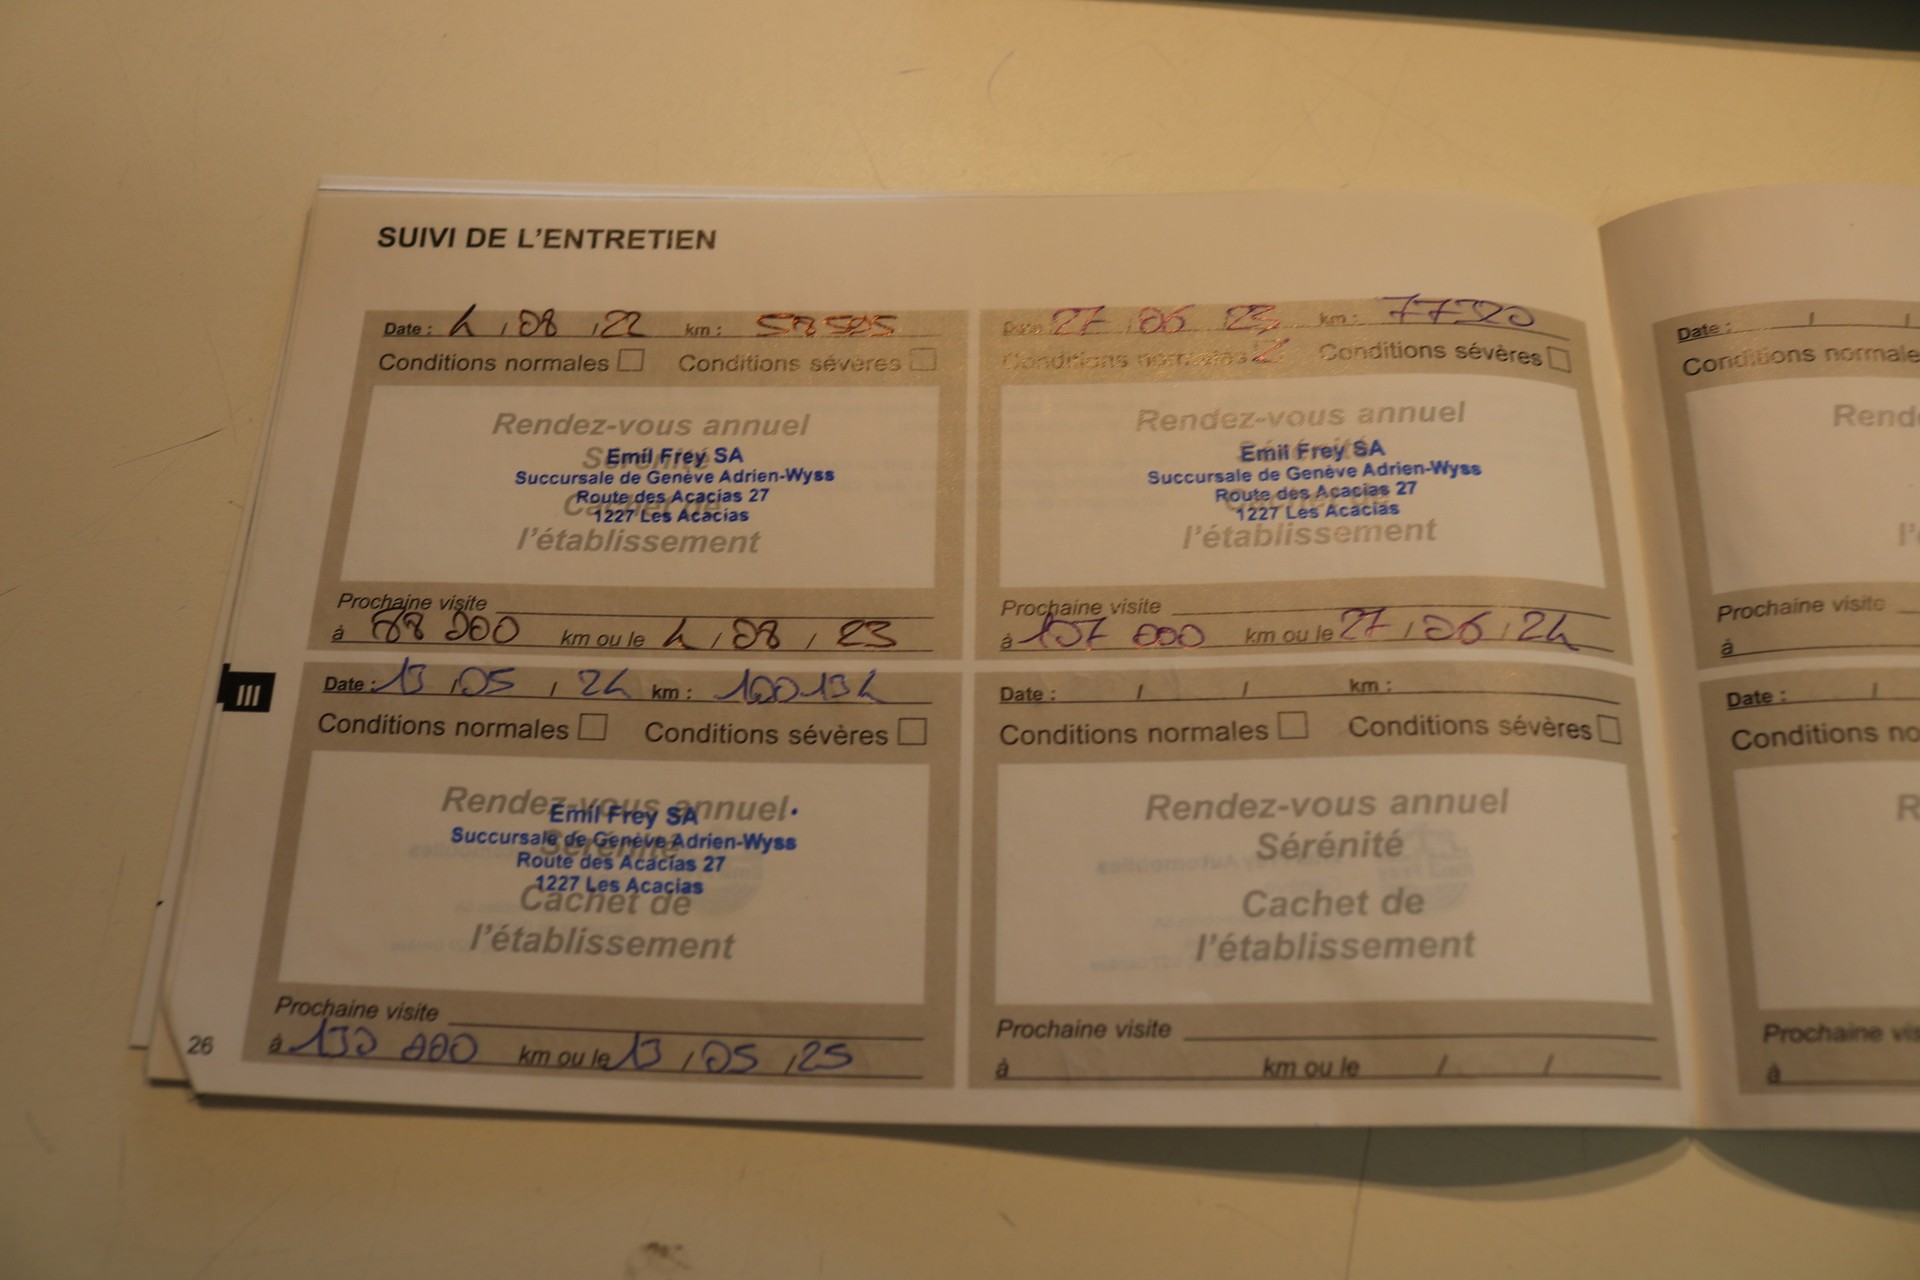 SUIVI DE L'ENTRETIEN
Date : 4 / 08 / 22 km : 58505
Conditions normales Conditions sévères
Rendez-vous annuel
Sérénité
Emil Frey SA
Succursale de Genève Adrien-Wyss
Route des Acacias 27
Cachet de
1227 Les Acacias
l'établissement
Prochaine visite
à 88 000 km ou le 4 / 08 / 23
Date : 27 / 06 / 23 km : 77320
Conditions normales Conditions sévères
Rendez-vous annuel
Sérénité
Emil Frey SA
Succursale de Genève Adrien-Wyss
Route des Acacias 27
Cachet de
1227 Les Acacias
l'établissement
Prochaine visite
à 107 000 km ou le 27 / 06 / 24
III
Date : 13 / 05 / 24 km : 100134
Conditions normales Conditions sévères
Rendez-vous annuel
Emil Frey SA
Sérénité
Succursale de Genève Adrien-Wyss
Route des Acacias 27
1227 Les Acacias
Cachet de
l'établissement
Prochaine visite
à 130 000 km ou le 13 / 05 / 25
Date : / / km :
Conditions normales Conditions sévères
Rendez-vous annuel
Sérénité
Cachet de
l'établissement
Prochaine visite
à km ou le / /
26
Date : / /
Conditions normale
Rend
l'
Prochaine visite
à
Date : /
Conditions no
R
Prochaine vis
à